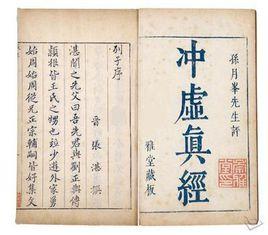 孫月峯先生評
冲虛眞經
雅堂藏板
列子序
晉 張湛 撰
湛聞之先父曰吾先君與劉正輿傅
頴根皆王氏之甥也竝少遊外家舅
始周始周從兄正宗輔嗣皆好集文